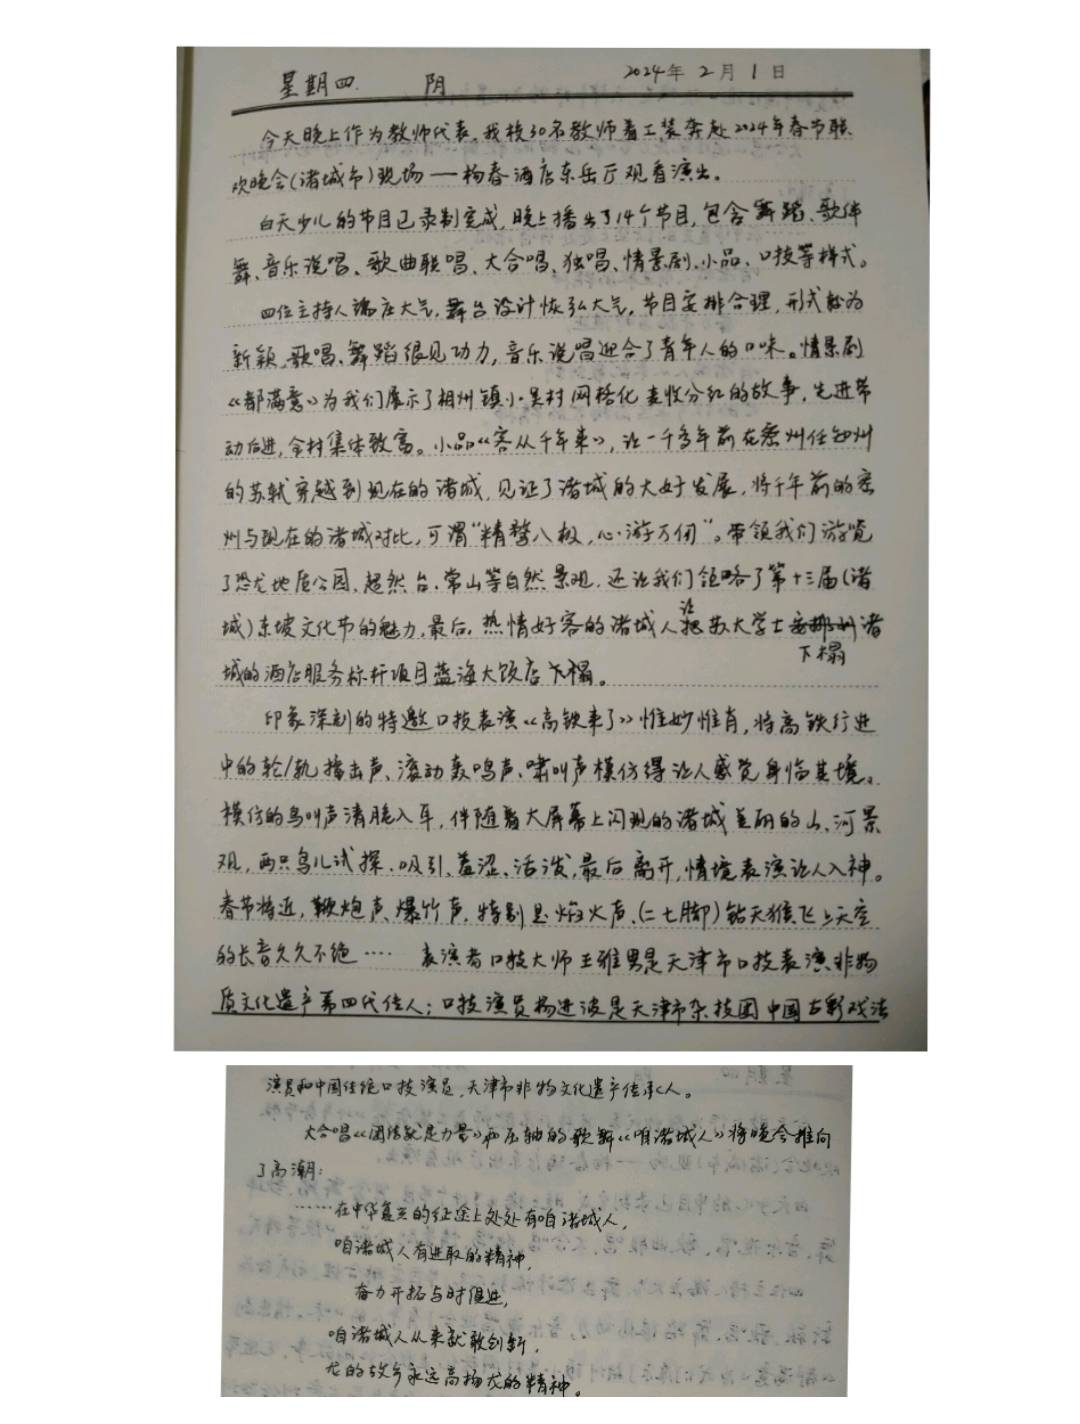 星期四 阴 2024年2月1日
今天晚上作为教师代表,我校30名教师着工装奔赴2024年春节联
欢晚会(诸城市)现场——杨春酒店东岳厅观看演出。
白天少儿的节目已录制完成,晚上播出了14个节目,包含舞蹈、歌伴
舞、音乐说唱、歌曲联唱、大合唱、独唱、情景剧、小品、口技等样式。
四位主持人端庄大气,舞台设计恢弘大气,节目安排合理,形式较为
新颖,歌唱、舞蹈很见功力,音乐说唱迎合了青年人的口味。情景剧
《都满意》为我们展示了相州镇小吴村网格化麦收分红的故事,先进带
动后进,全村集体致富。小品《客从千年来》,让一千多年前在密州任知州
的苏轼穿越到现在的诸城,见证了诸城的大好发展,将千年前的密
州与现在的诸城对比,可谓“精骛八极,心游万仞”。带领我们游览
了恐龙地质公园、超然台、常山等自然景观,还让我们领略了第十三届(诸
城)东坡文化节的魅力,最后,热情好客的诸城人让苏大学士诸
城的酒店服务标杆项目蓝海大饭店下榻。
下榻
印象深刻的特邀口技表演《高铁来了》惟妙惟肖,将高铁行进
中的轮/轨撞击声、滚动轰鸣声、啸叫声模仿得让人感觉身临其境。
模仿的鸟叫声清脆入耳,伴随着大屏幕上闪现的诸城美丽的山、河景
观,两只鸟儿试探、吸引、羞涩、活泼,最后离开,情境表演让人入神。
春节将近,鞭炮声、爆竹声,特别是焰火声、(二七脚)钻天猴飞上天空
的长音久久不绝…… 表演者口技大师王雅男是天津市口技表演非物
质文化遗产第四代传人;口技演员杨进波是天津市杂技团中国古彩戏法
演员和中国传统口技演员,天津市非物文化遗产传承人。
大合唱《团结就是力量》和压轴的歌舞《咱诸城人》将晚会推向
了高潮:
……在中华复兴的征途上处处有咱诸城人,
咱诸城人有进取的精神,
奋力开拓与时俱进,
咱诸城人从来就敢创新,
龙的故乡永远高扬龙的精神。